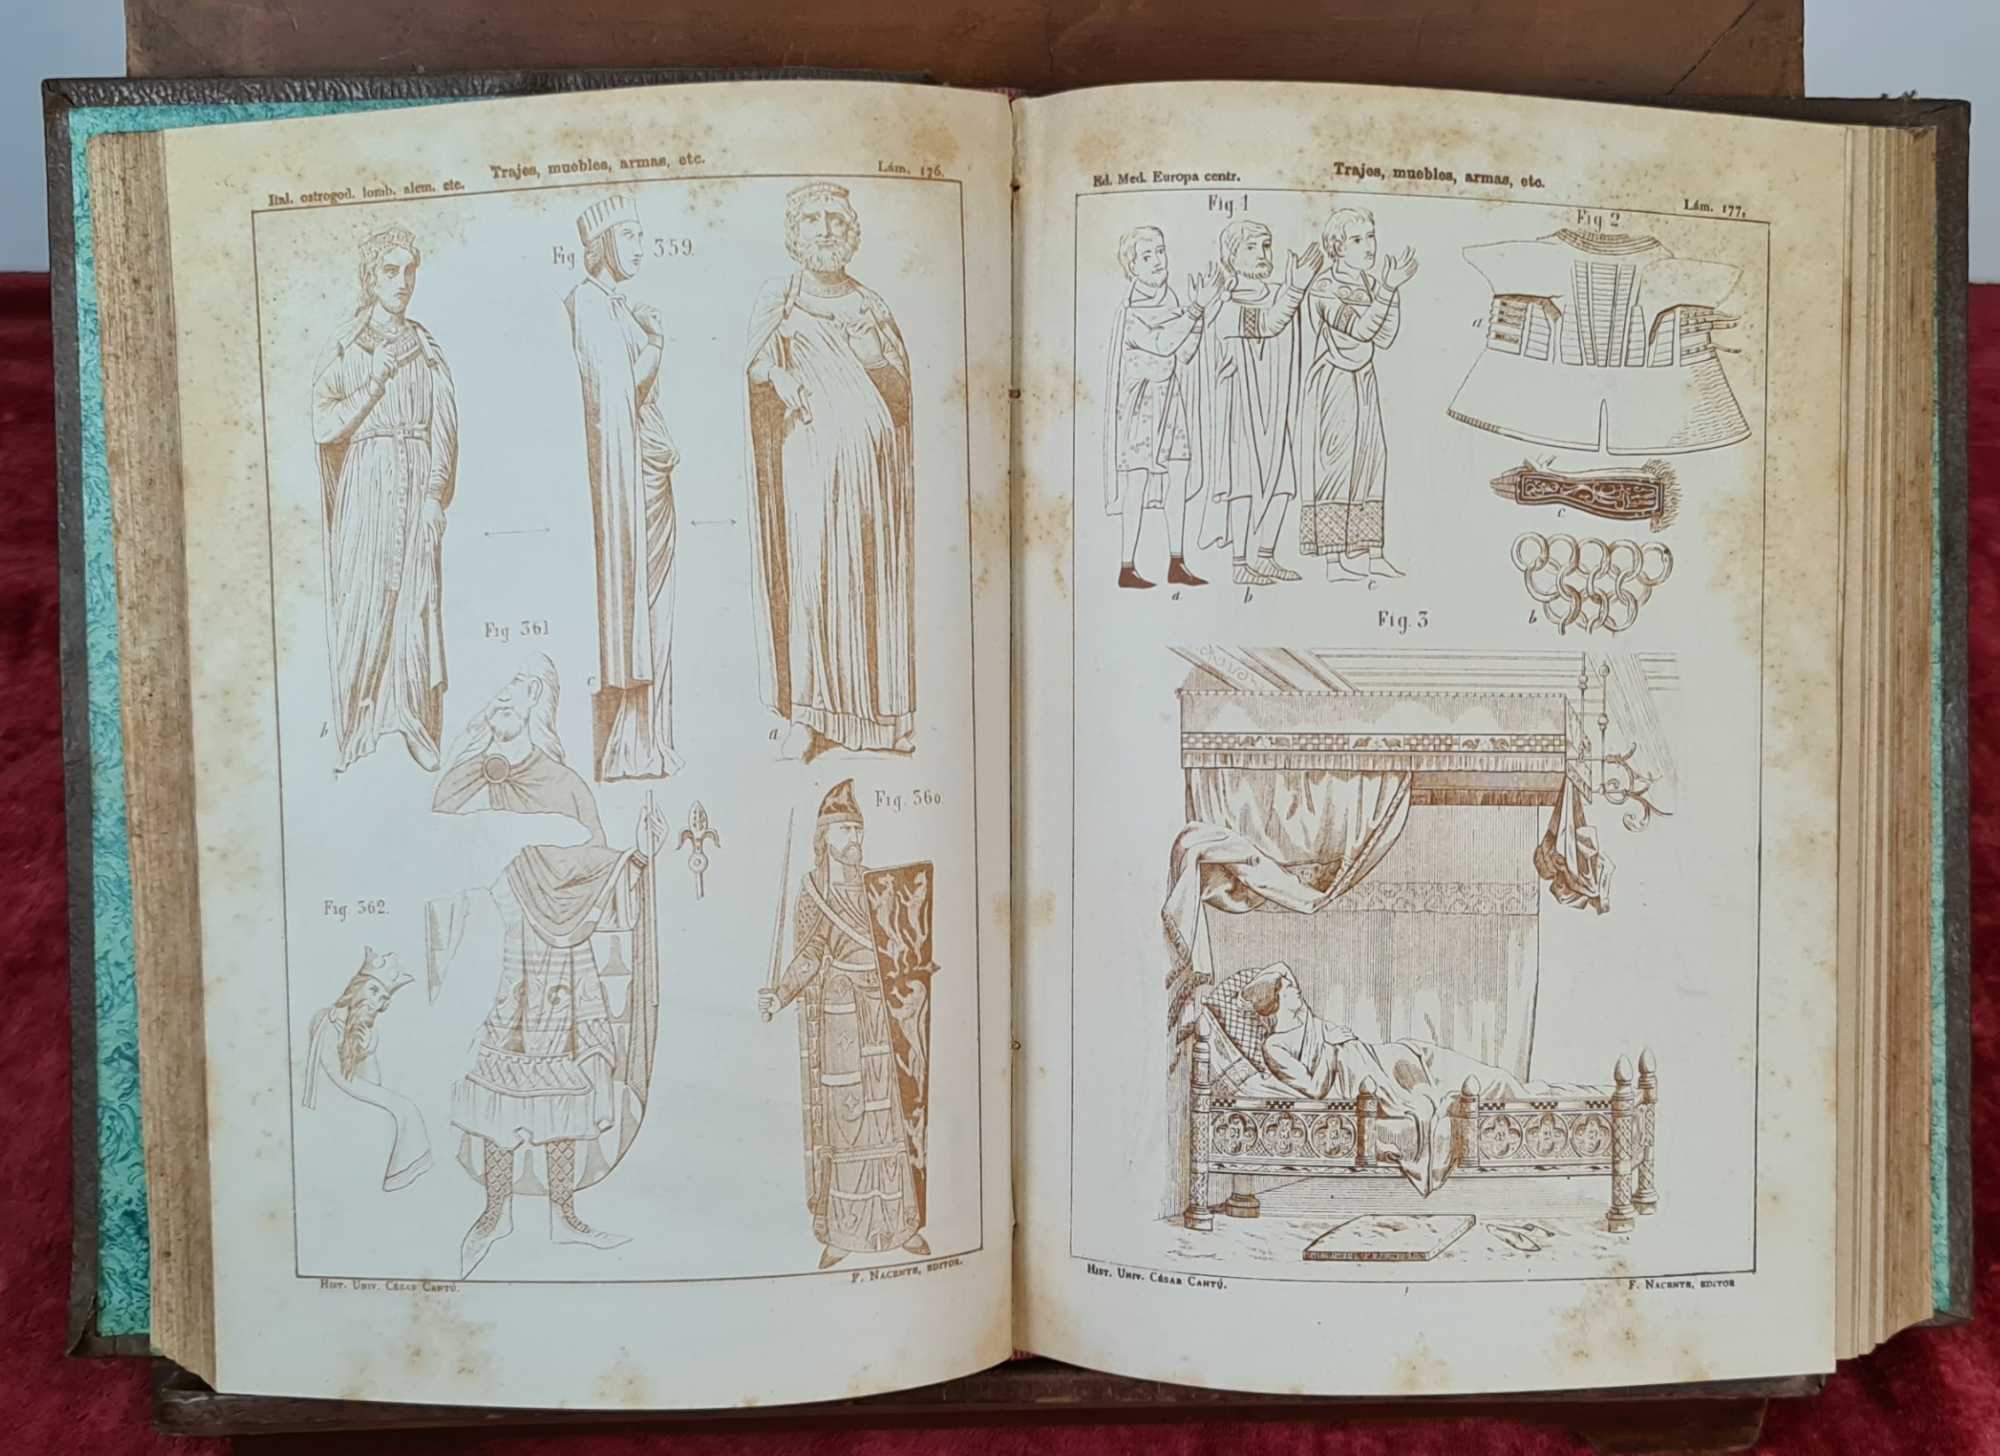 Ital. ostrogod. lomb. alem. etc.
Trajes, muebles, armas, etc.
Lám. 176.
Fig 359.
b
c
a
Fig 361
Fig. 360.
Fig. 362.
Hist. Univ. César Cantú.
F. Nacente, editor.
Ed. Med. Europa centr.
Trajes, muebles, armas, etc.
Lám. 177.
Fig 1
Fig 2
a
a
b
c
c
b
Fig. 3
Hist. Univ. César Cantú.
F. Nacente, editor